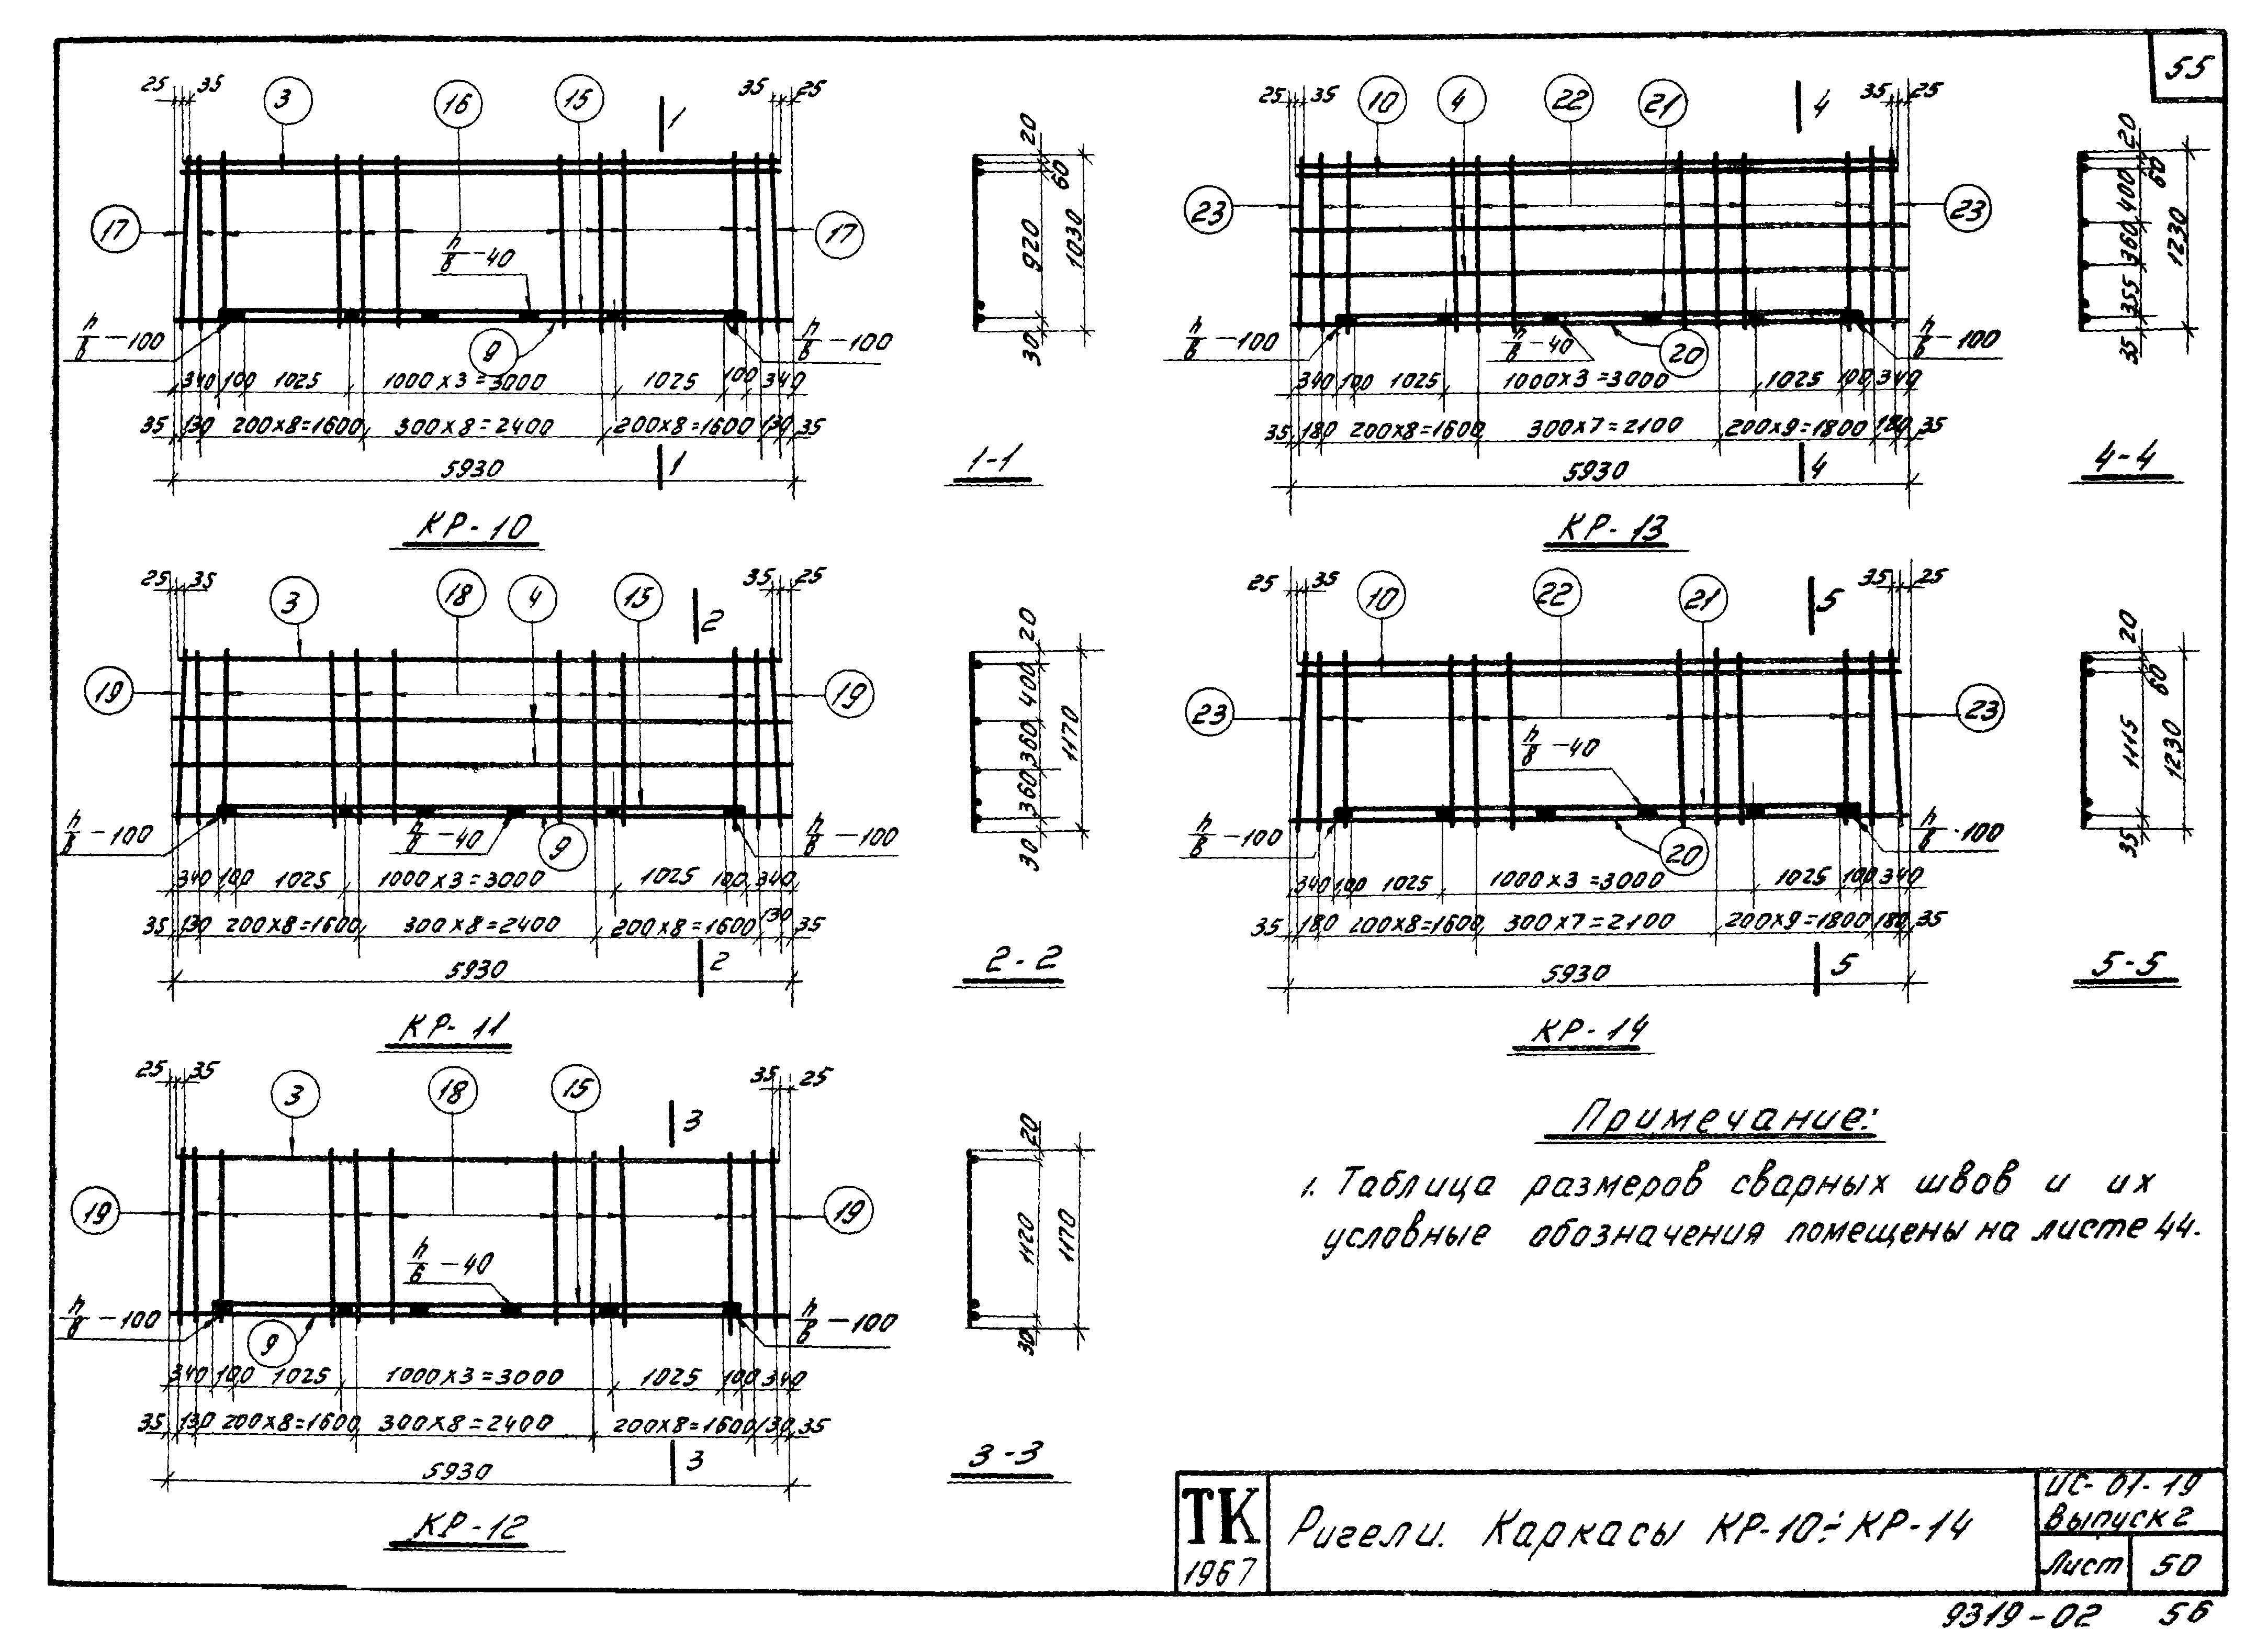 55
25 35 3 16 15 1 35 25
17 17
h/в-40
h/в-100 9 h/в-100
340 100 1025 1000x3=3000 1025 100 340
35 130 200x8=1600 300x8=2400 200x8=1600 130 35
5930 1
КР-10
20
60
920 1030
30
1-1
25 35 10 4 22 21 4 35 25
23 23
h/в-100 h/в-40 20 h/в-100
340 100 1025 1000x3=3000 1025 100 340
35 180 200x8=1600 300x7=2100 200x9=1800 180 35
5930 4
КР-13
20
60
400
360 1230
355
35
4-4
25 35 3 18 4 15 2 35 25
19 19
h/в-100 h/в-40 9 h/в-100
340 100 1025 1000x3=3000 1025 100 340
35 130 200x8=1600 300x8=2400 200x8=1600 130 35
5930 2
КР-11
20
400
360 1170
360
30
2-2
25 35 10 22 21 5 35 25
23 23
h/в-40
h/в-100 20 h/в-100
340 100 1025 1000x3=3000 1025 100 340
35 180 200x8=1600 300x7=2100 200x9=1800 180 35
5930 5
КР-14
20
60
1115 1230
35
5-5
25 35 3 18 15 3 35 25
19 19
h/в-40
h/в-100 9 h/в-100
340 100 1025 1000x3=3000 1025 100 340
35 130 200x8=1600 300x8=2400 200x8=1600 130 35
5930 3
КР-12
20
1120 1170
30
3-3
Примечание:
1. Таблица размеров сварных швов и их
условные обозначения помещены на листе 44.
ТК
1967
Ригели. Каркасы КР-10÷КР-14
ИС-01-19
Выпуск 2
Лист 50
9319-02 56